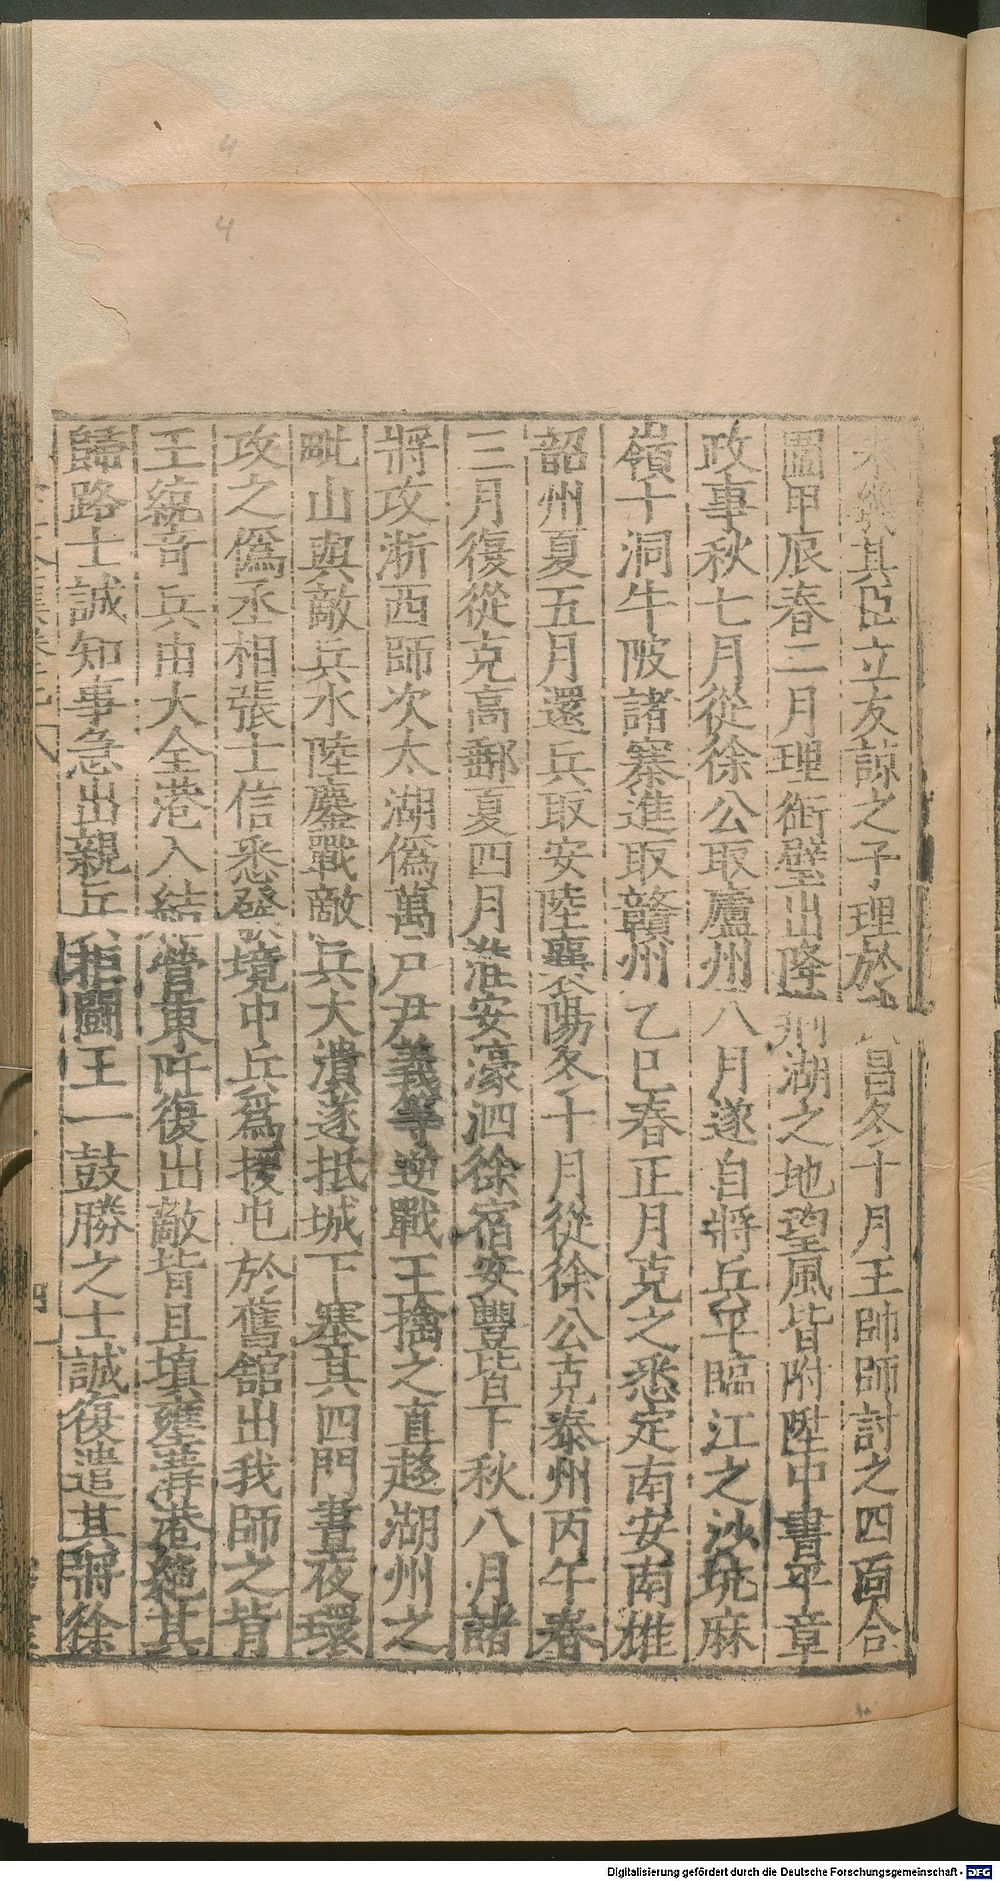 未幾其臣立友諒之子理於武昌冬十月王帥師討之四面合
圖甲辰春二月理銜璧出降荊湖之地望風皆附陞中書平章
政事秋七月從徐公取廬州八月遂自將兵平臨江之沙坑麻
嶺十洞牛陂諸寨進取贛州乙巳春正月克之悉定南安南雄
韶州夏五月還兵取安陸襄陽冬十月從徐公克泰州丙午春
三月復從克高郵夏四月淮安濠泗徐宿安豐皆下秋八月諸
將攻浙西師次太湖偽萬戶尹義等逆戰王擒之直趍湖州之
毗山與敵兵水陸鏖戰敵兵大潰遂抵城下塞其四門晝夜環
攻之偽丞相張士信悉發境中兵為援屯於舊舘出我師之背
王統奇兵由大全港入結營東阡復出敵背且填壅溝港絕其
歸路士誠知事急出親兵拒鬭王一鼓勝之士誠復遣其將徐
4
4
Digitalisierung gefördert durch die Deutsche Forschungsgemeinschaft - DFG